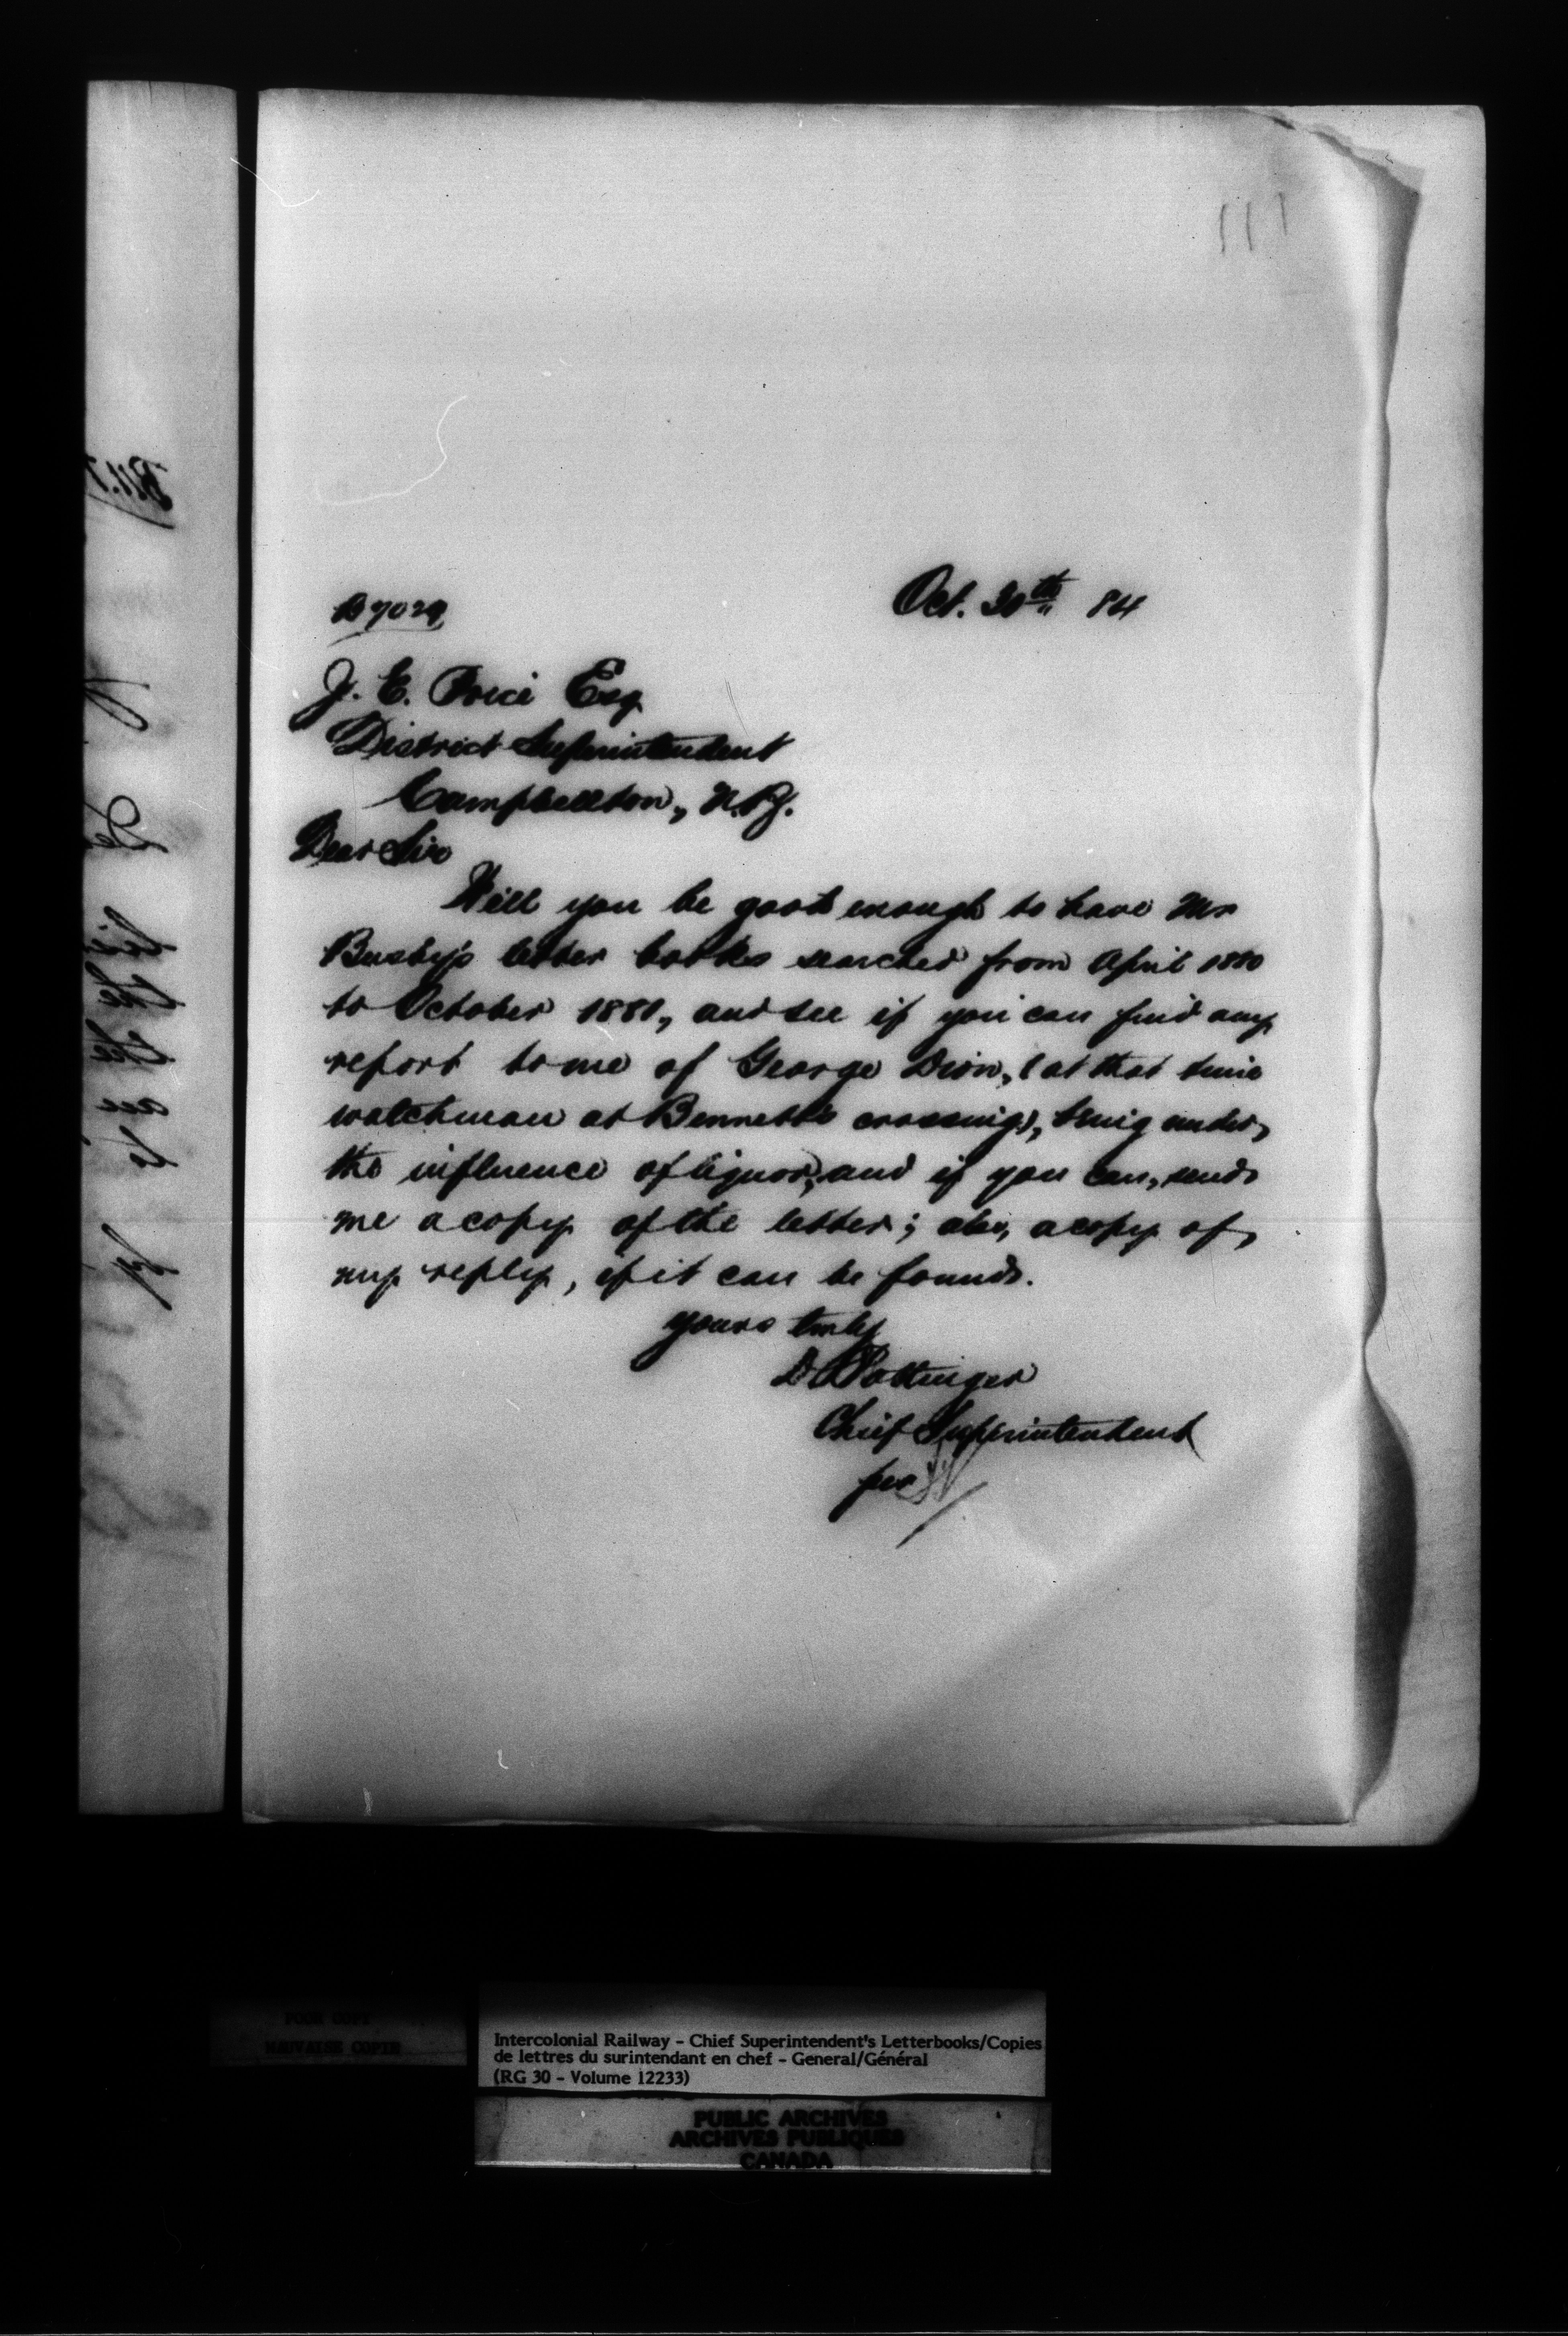 111
B 7029
Oct. 30th 84
J. E. Price Esq
District Superintendent
Campbellton, N.B.
Dear Sir
Will you be good enough to have Mr
Busby's letter books searched from April 1880
to October 1881, and see if you can find any
report to me of George Dion, (at that time
watchman at Bennett's crossing), being under
the influence of liquor, and if you can, send
me a copy of the letter; also, a copy of
my reply, if it can be found.
Yours truly
D Pottinger
Chief Superintendent
per
POOR COPY
MAUVAISE COPIE
Intercolonial Railway - Chief Superintendent's Letterbooks/Copies
de lettres du surintendant en chef - General/Général
(RG 30 - Volume 12233)
PUBLIC ARCHIVES
ARCHIVES PUBLIQUES
CANADA